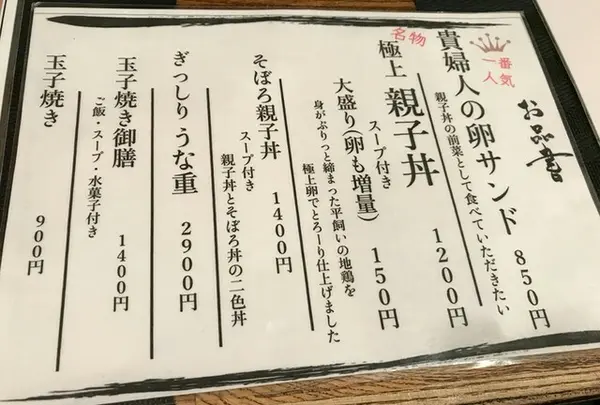 お品書
一番
人気
貴婦人の卵サンド 850円
親子丼の前菜として食べていただきたい
名物
極上 親子丼 1200円
スープ付き
大盛り(卵も増量) 150円
身がぷりっと締まった平飼いの地鶏を
極上卵でとろーり仕上げました
そぼろ親子丼 1400円
スープ付き
親子丼とそぼろ丼の二色丼
ぎっしり うな重 2900円
玉子焼き御膳 1400円
ご飯・スープ・水菓子付き
玉子焼き 900円